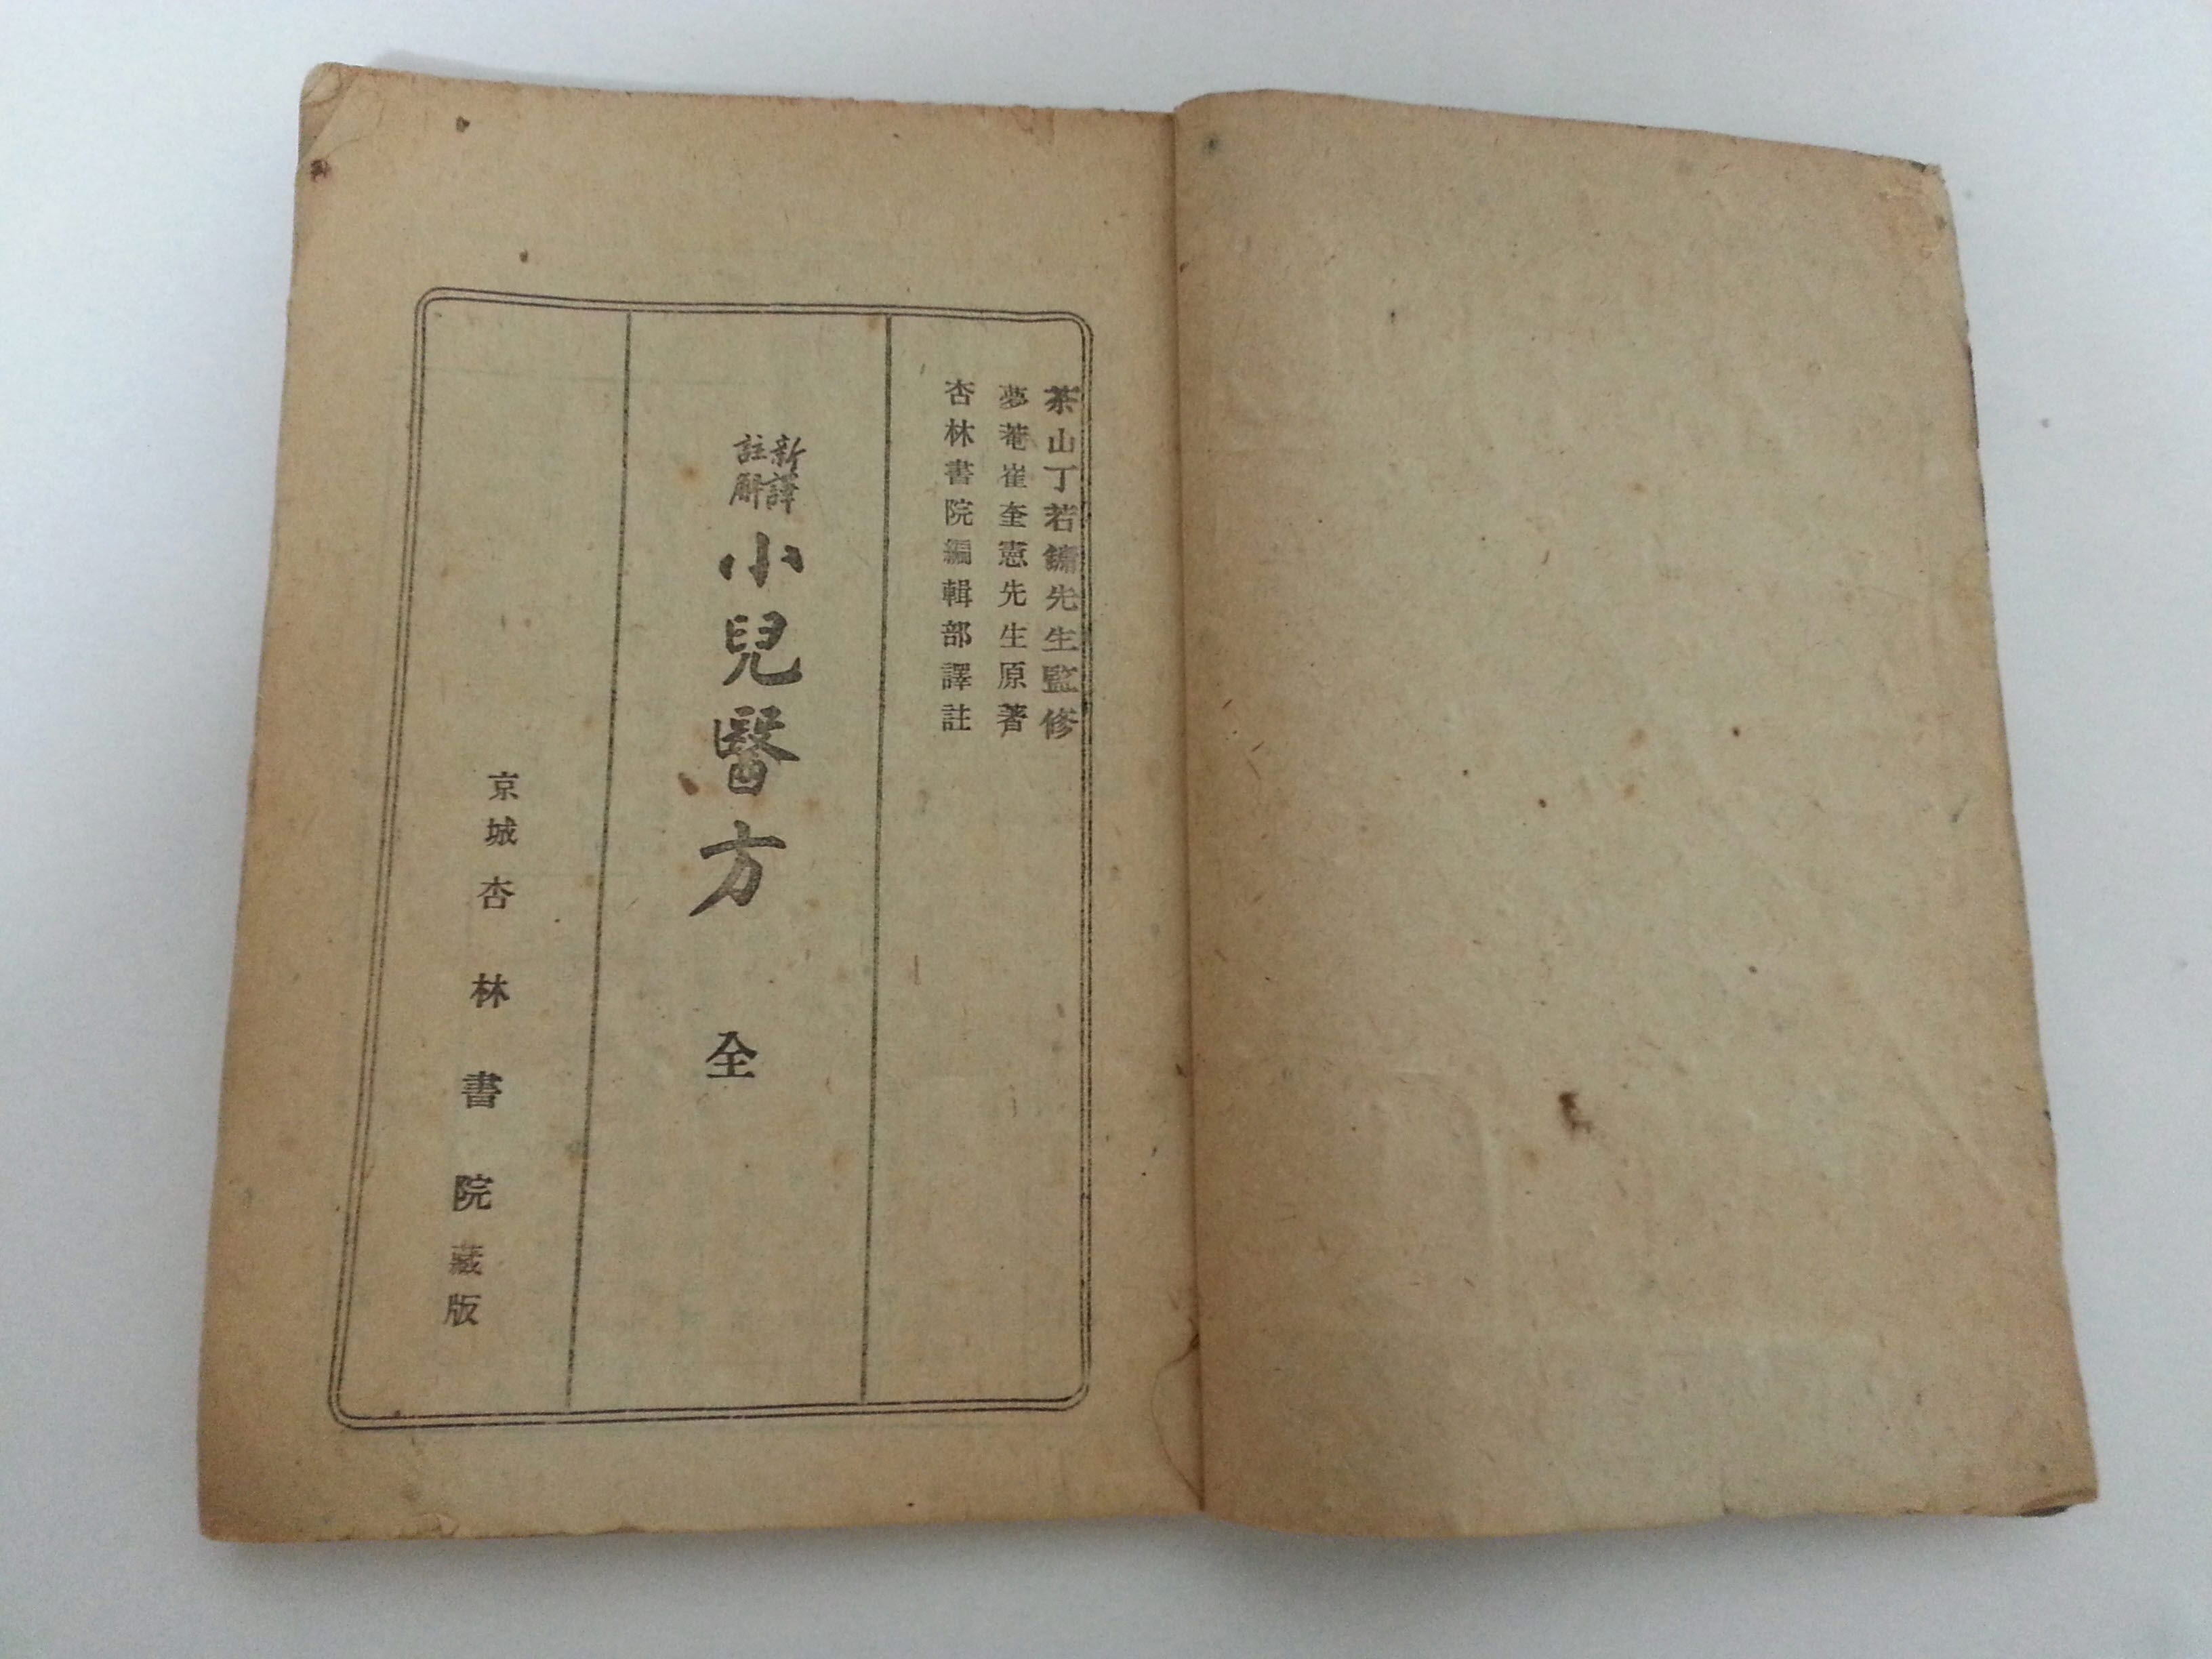 茶山丁若鏞先生監修
夢菴崔奎憲先生原著
杏林書院編輯部譯註
新譯
註解
小兒醫方 全
京城 杏林書院 藏版